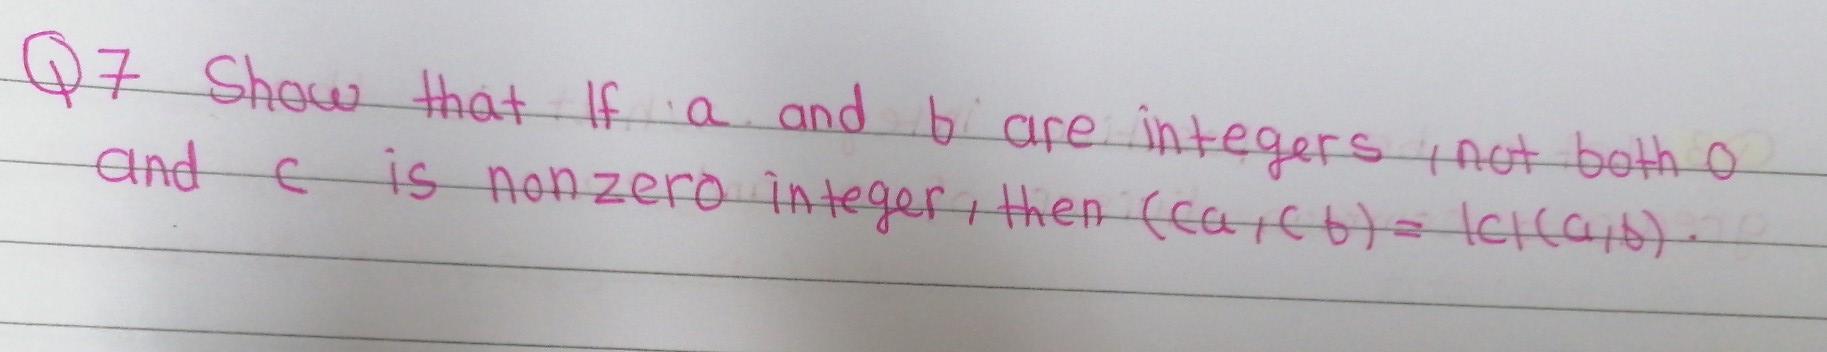 Q7 Show that If a and b are integers, not both 0
and c is nonzero integer, then (ca, cb) = |c|(a,b).